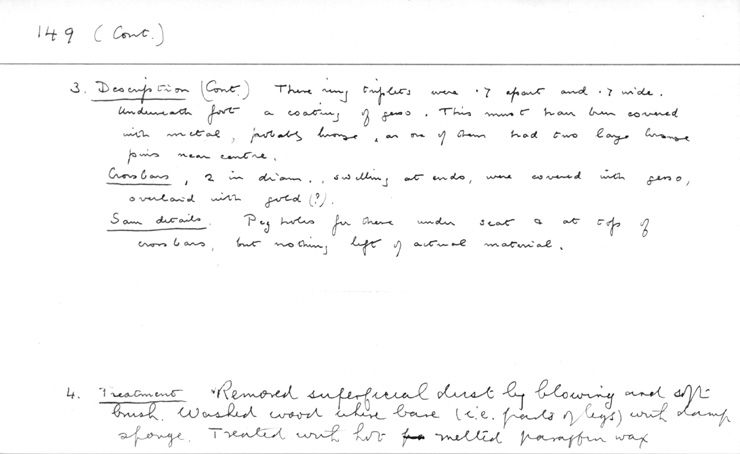 149 (Cont.)
3. Description (Cont) These ring triplets were .7 apart and .7 wide.
Underneath foot a coating of gesso. This must have been covered
with metal, probably bronze, as one of them had two large bronze
pins near centre.
Crossbars, 2 in diam., swelling at ends, were covered with gesso,
overlaid with gold (?).
Sam details. Peg holes for these under seat & at top of
crossbars, but nothing left of actual material.
4. Treatment Removed superficial dust by blowing and soft
brush. Washed wood where bare (i.e. parts of legs) with damp
sponge. Treated with hot melted paraffin wax